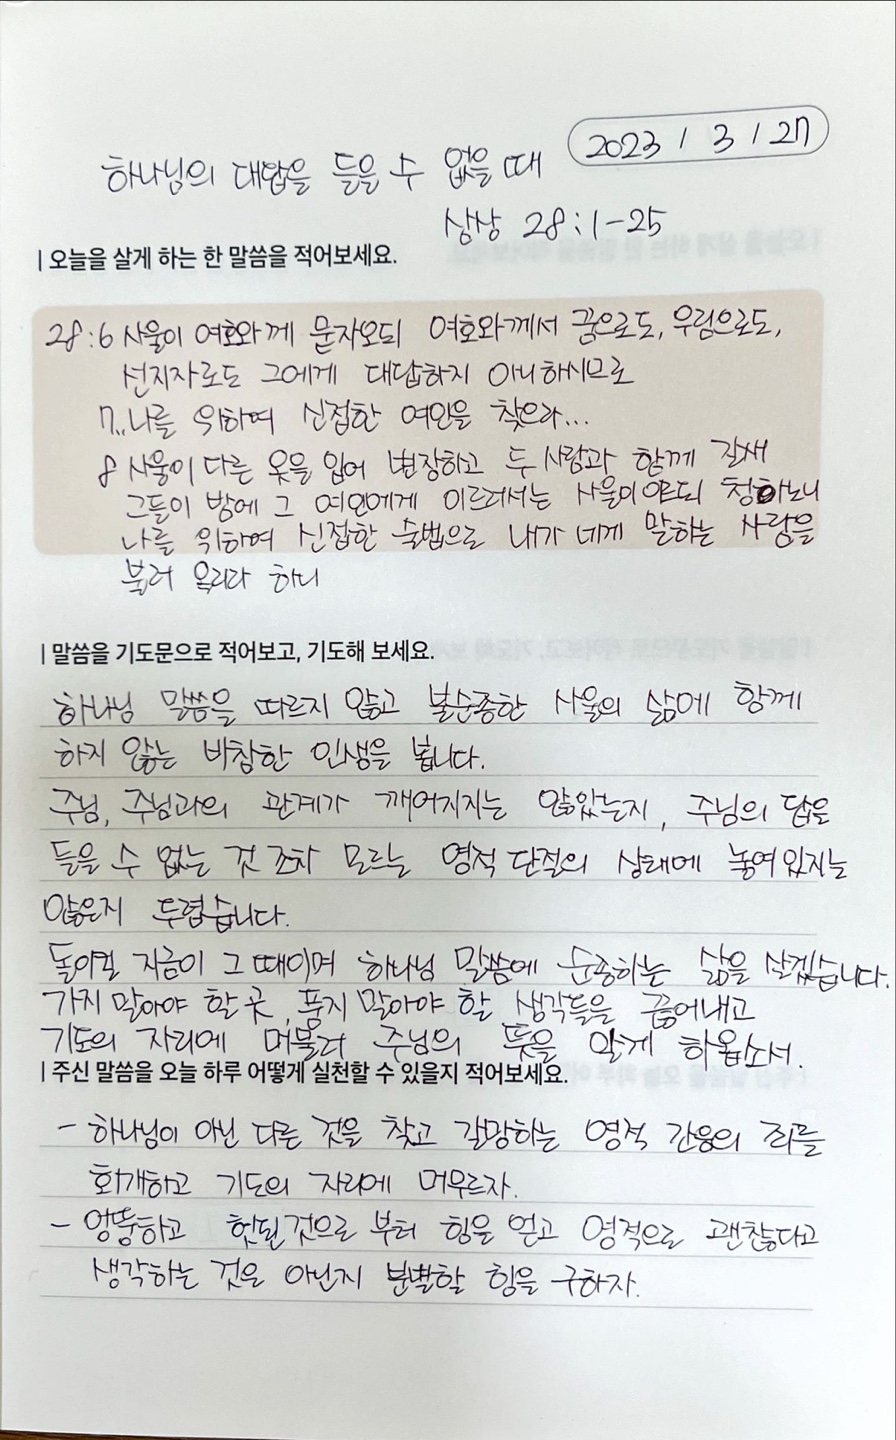 2023 / 3 / 27
하나님의 대답을 들을 수 없을 때
삼상 28:1-25
| 오늘을 살게 하는 한 말씀을 적어보세요.
28:6 사울이 여호와께 묻자오되 여호와께서 꿈으로도, 우림으로도,
선지자로도 그에게 대답하지 아니하시므로
7..나를 위하여 신접한 여인을 찾으라...
8 사울이 다른 옷을 입어 변장하고 두 사람과 함께 갈새
그들이 밤에 그 여인에게 이르러서는 사울이 이르되 청하노니
나를 위하여 신접한 술법으로 내가 네게 말하는 사람을
불러 올리라 하니
| 말씀을 기도문으로 적어보고, 기도해 보세요.
하나님 말씀을 따르지 않고 불순종한 사울의 삶에 함께
하지 않는 비참한 인생을 봅니다.
주님, 주님과의 관계가 깨어지지는 않았는지, 주님의 답을
들을 수 없는 것 조차 모르는 영적 단절의 상태에 놓여있지는
않은지 두렵습니다.
돌이킬 지금이 그 때이며 하나님 말씀에 순종하는 삶을 살겠습니다.
가지 말아야 할 곳, 품지 말아야 할 생각들을 끊어내고
기도의 자리에 머물러 주님의 뜻을 알게 하옵소서.
| 주신 말씀을 오늘 하루 어떻게 실천할 수 있을지 적어보세요.
- 하나님이 아닌 다른 것을 찾고 갈망하는 영적 간음의 죄를
회개하고 기도의 자리에 머무르자.
- 엉뚱하고 헛된것으로 부터 힘을 얻고 영적으로 괜찮다고
생각하는 것은 아닌지 분별할 힘을 구하자.